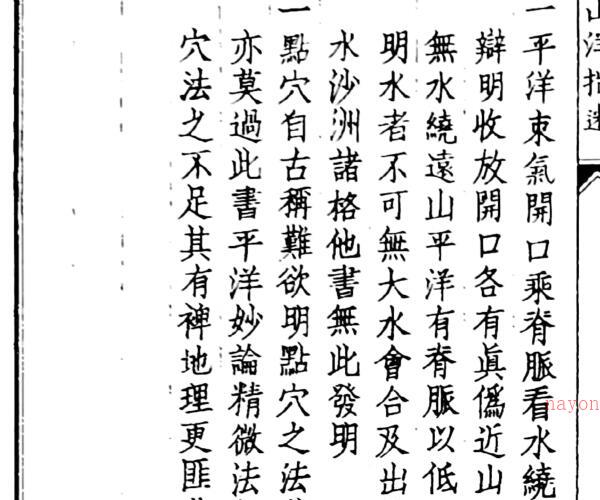 山洋指迷
一平洋束氣開口乘脊脈看水繞
辯明收放開口各有眞僞近山
無水繞遠山平洋有脊脈以低
明水者不可無大水會合及出
水沙洲諸格他書無此發明
一點穴自古稱難欲明點穴之法
亦莫過此書平洋妙論精微法
穴法之不足其有裨地理更匪
nayon